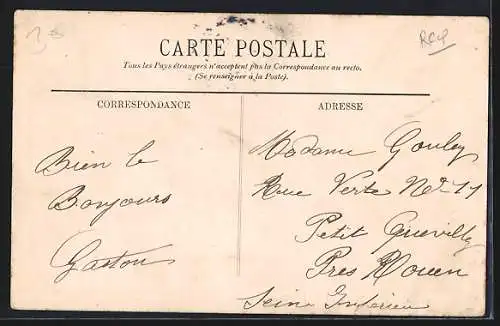 CARTE POSTALE
Tous les Pays étrangers n'acceptent pas la Correspondance au recto.
(Se renseigner à la Poste).
CORRESPONDANCE
Bien le
Bonjours
Gaston
ADRESSE
Madame Gouley
Rue Verte No 17
Petit Quevilly
Près Rouen
Seine Inférieure